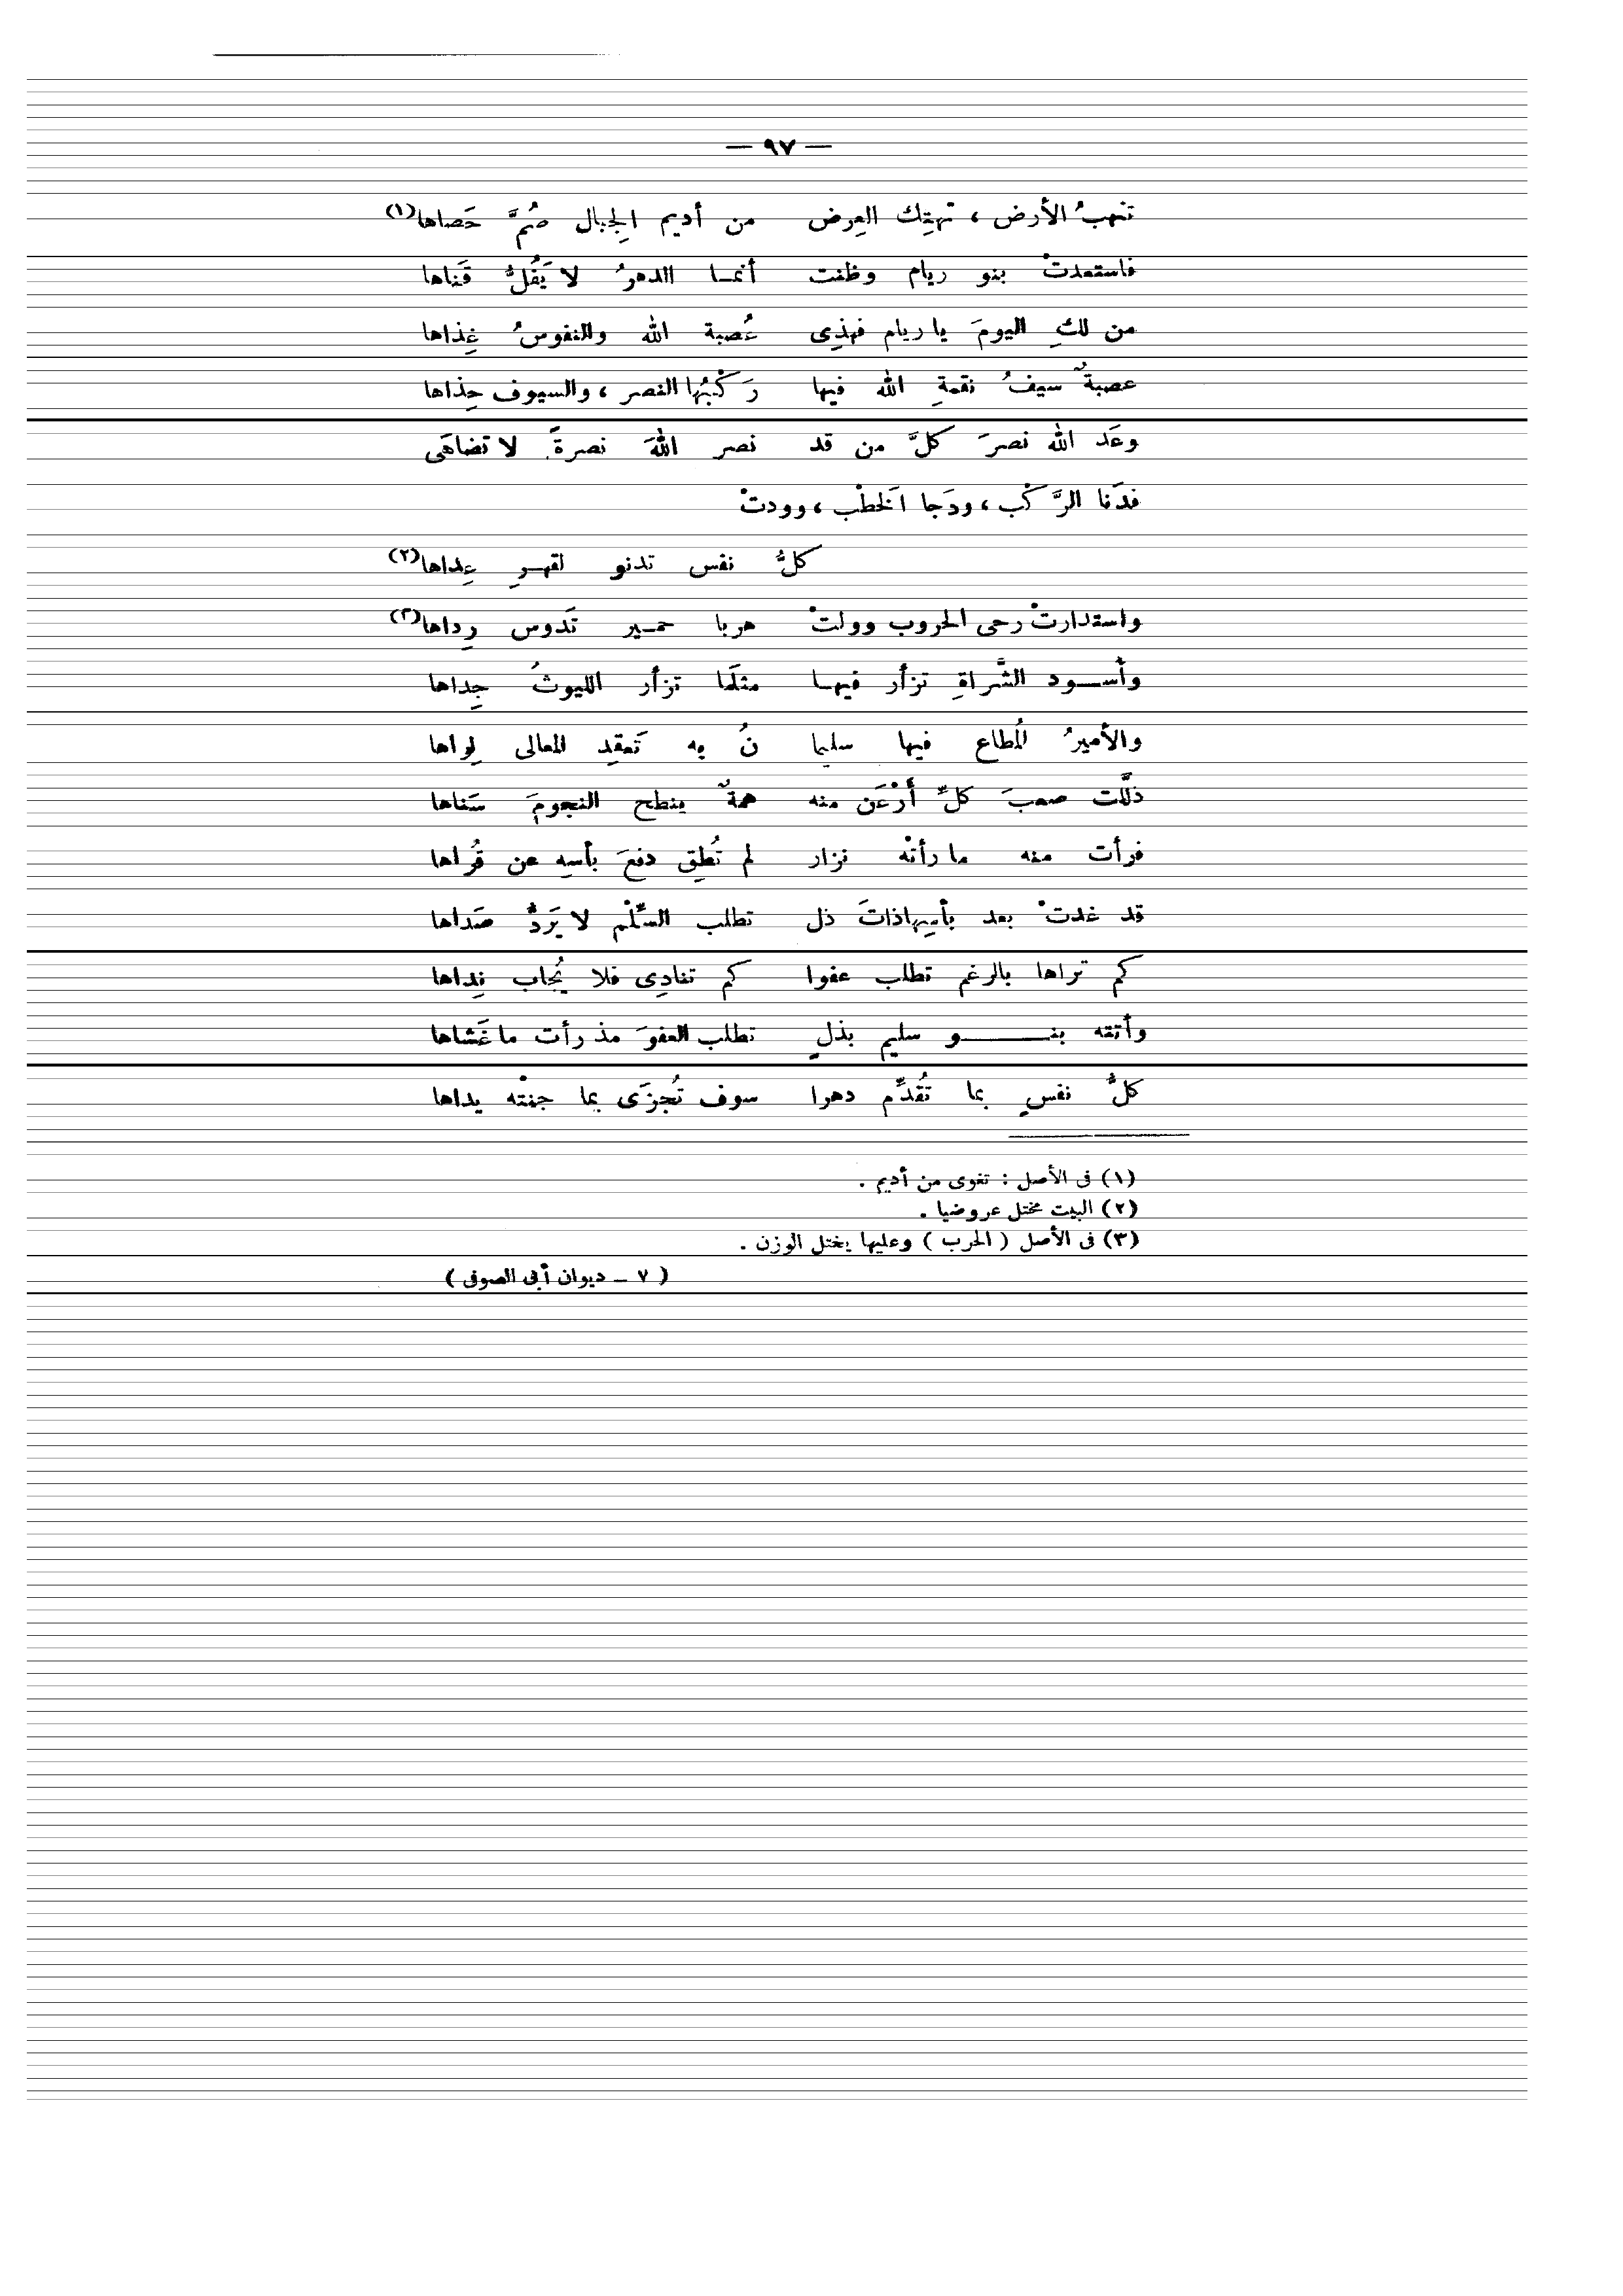 — ٩٧ —
تنهبُ الأرض ، تهتِك العِرض من أديم الجِبال صُمَّ حَصاها(١)
فاستعدتْ بنو ريام وظنت أنما الدهرُ لا يَفُلُّ قَناها
من لكِ اليومَ يا ريام فهذِى عُصبة الله والنفوسُ غِذاها
عصبةٌ سيفُ نقمةِ الله فيها رَكْبُها النصر ، والسيوف حِذاها
وعَد الله نصرَ كلَّ من قد نصر اللهَ نصرةً لا تضاهَى
فدَنا الرَّكْب ، ودَجا الَخطْب ، وودتْ
كلُّ نفس تدنو لقهرِ عِداها(٢)
واستدارتْ رحى الحروب وولتْ هربا حمير تَدوس رِداها(٣)
وأسود الشَّراةِ تزأر فيها مثلَما تزأر الليوثُ جِداها
والأميرُ المُطاع فيها سليما نُ به تَعقِد المعالى لِواها
ذلَّلت صعبَ كلِّ أرْعَن منه همةٌ ينطح النجومَ سَناها
فرأت منه ما رأتْه نزار لم تُطِق دفعَ بأسِه عن قُراها
قد غدتْ بعد بأسِها ذاتَ ذل تطلب السِّلْم لا يَردُّ صَداها
كم تراها بالرغم تطلب عفوا كم تنادِى فلا يُجاب نِداها
وأتته بنو سليم بذلٍ تطلب العفوَ مذ رأت ما غَشاها
كلُّ نفسٍ بما تُقدِّم دهرا سوف تُجزَى بما جنتْه يداها
(١) فى الأصل : تغوى من أديم .
(٢) البيت مختل عروضيا .
(٣) فى الأصل ( الحرب ) وعليها يختل الوزن .
( ٧ ـ ديوان أبى الصوفى )